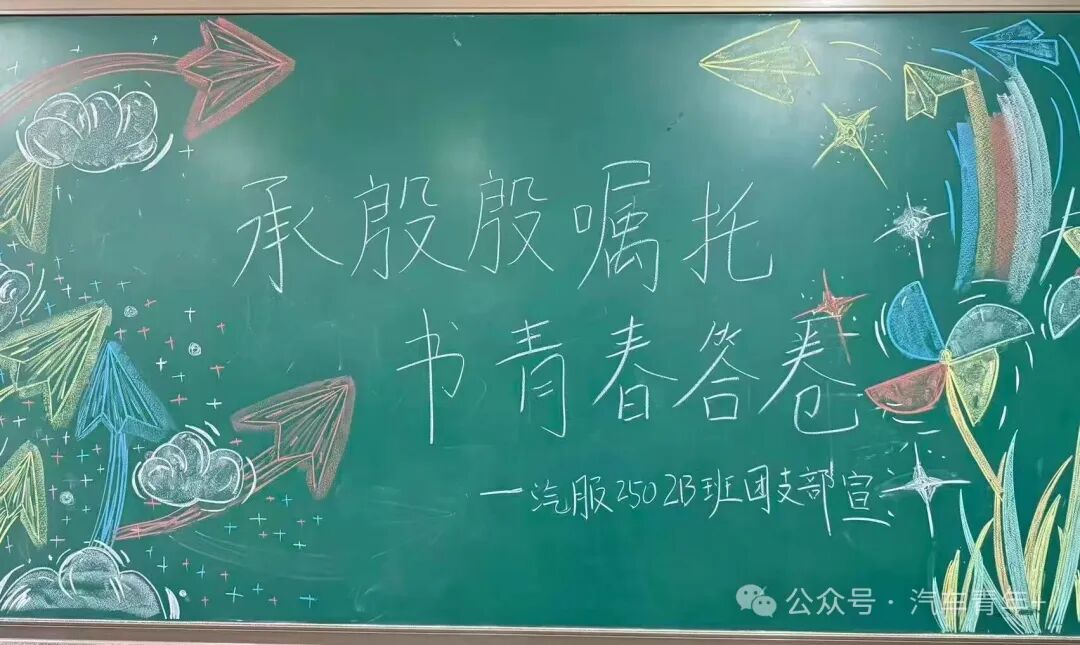 承殷殷嘱托
书青春答卷
一汽服2502B班团支部宣
公众号·汽车青年+